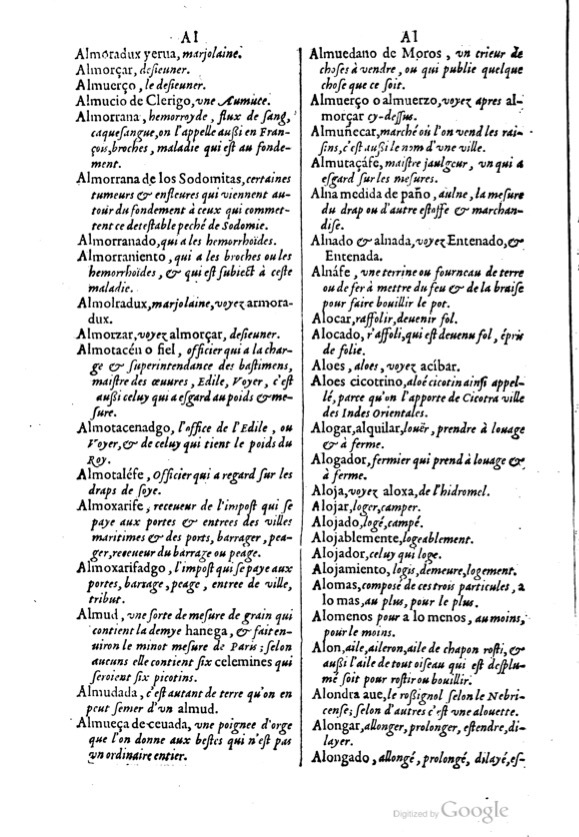 Al
Almoradux yerua, marjolaine.
Almorçar, desieuner.
Almuerço, le desieuner.
Almucio de Clerigo, vne Aumuce.
Almorrana, hemorroyde, flux de sang,
caquesangue, on l'appelle außi en Fran-
çois, broches, maladie qui est au fonde-
ment.
Almorrana de los Sodomitas, certaines
tumeurs & enfleures qui viennent au-
tour du fondement à ceux qui commet-
tent ce detestable peché de Sodomie.
Almorranado, qui a les hemorrhoïdes.
Almorraniento, qui a les broches ou les
hemorrhoïdes, & qui est subiect à ceste
maladie.
Almolradux, marjolaine, voyez armora-
dux.
Almorzar, voyez almorçar, desieuner.
Almotacén o fiel, officier qui a la char-
ge & superintendance des bastimens,
maistre des œuures, Edile, Voyer, c'est
außi celuy qui a esgard au poids & me-
sure.
Almotacenadgo, l'office de l'Edile, ou
Voyer, & de celuy qui tient le poids du
Roy.
Almotaléfe, Officier qui a regard sur les
draps de soye.
Almoxarife, receueur de l'impost qui se
paye aux portes & entrees des villes
maritimes & des ports, barrager, pea-
ger, receueur du barrage ou peage.
Almoxarifadgo, l'impost qui se paye aux
portes, barrage, peage, entree de ville,
tribut.
Almud, vne sorte de mesure de grain qui
contient la demye hanega, & fait en-
uiron le minot mesure de Paris; selon
aucuns elle contient six celemines qui
seroient six picotins.
Almudada, c'est autant de terre qu'on en
peut semer d'vn almud.
Almueça de ceuada, vne poignee d'orge
que l'on donne aux bestes qui n'est pas
vn ordinaire entier.
Al
Almuedano de Moros, vn crieur de
choses à vendre, ou qui publie quelque
chose que ce soit.
Almuerço o almuerzo, voyez apres al-
morçar cy-dessus.
Almuñecar, marché où l'on vend les rai-
sins, c'est außi le nom d'vne ville.
Almutaçáfe, maistre jaulgeur, vn qui a
esgard sur les mesures.
Alna medida de paño, aulne, la mesure
du drap ou d'autre estoffe & marchan-
dise.
Alnado & alnada, voyez Entenado, &
Entenada.
Alnáfe, vne terrine ou fourneau de terre
ou de fer à mettre du feu & de la braise
pour faire bouillir le pot.
Alocar, raffolir, deuenir fol.
Alocado, r'affoli, qui est deuenu fol, épris
de folie.
Aloes, aloes, voyez acíbar.
Aloes cicotrino, aloé cicotin ainsi appel-
lé, parce qu'on l'apporte de Cicotra ville
des Indes Orientales.
Alogar, alquilar, louër, prendre à louage
& à ferme.
Alogador, fermier qui prend à louage &
à ferme.
Aloja, voyez aloxa, de l'hidromel.
Alojar, loger, camper.
Alojado, logé, campé.
Alojablemente, logeablement.
Alojador, celuy qui loge.
Alojamiento, logis, demeure, logement.
Alomas, composé de ces trois particules, a
lo mas, au plus, pour le plus.
Alomenos pour a lo menos, au moins,
pour le moins.
Alon, aile, aileron, aile de chapon rosti, &
außi l'aile de tout oiseau qui est desplu-
mé soit pour rostir ou bouillir.
Alondra aue, le roßignol selon le Nebri-
cense; selon d'autres c'est vne alouette.
Alongar, allonger, prolonger, estendre, di-
layer.
Alongado, allongé, prolongé, dilayé, es-
Digitized by Google